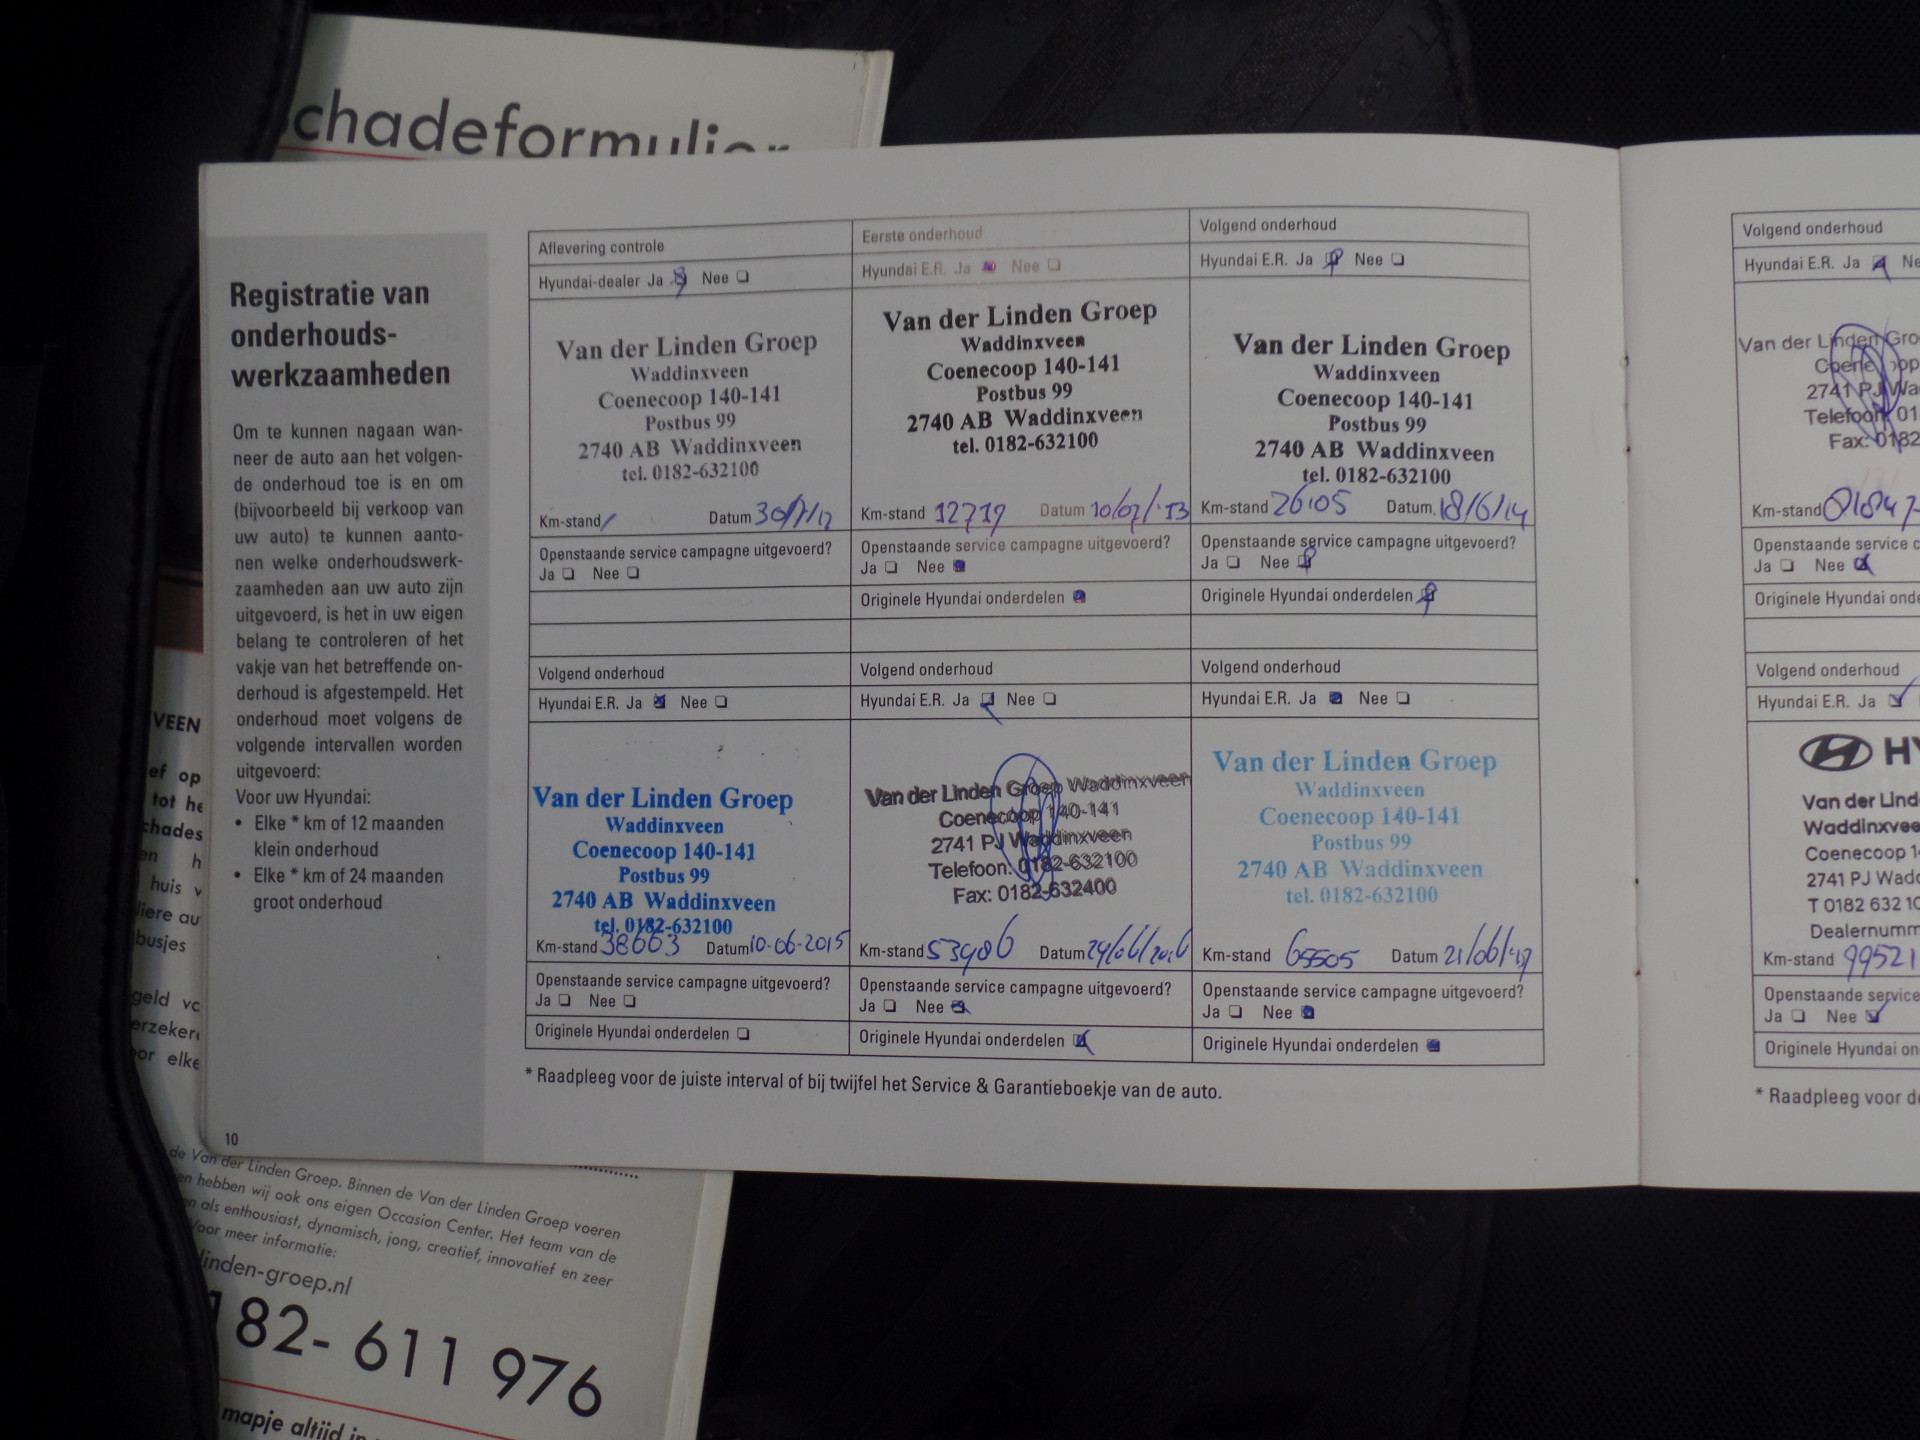 chadeformulier
Registratie van
onderhouds-
werkzaamheden
Om te kunnen nagaan wan-
neer de auto aan het volgen-
de onderhoud toe is en om
(bijvoorbeeld bij verkoop van
uw auto) te kunnen aanto-
nen welke onderhoudswerk-
zaamheden aan uw auto zijn
uitgevoerd, is het in uw eigen
belang te controleren of het
vakje van het betreffende on-
derhoud is afgestempeld. Het
onderhoud moet volgens de
volgende intervallen worden
uitgevoerd:
Voor uw Hyundai:
• Elke * km of 12 maanden
klein onderhoud
• Elke * km of 24 maanden
groot onderhoud
10
Aflevering controle
Hyundai-dealer Ja Nee
Van der Linden Groep
Waddinxveen
Coenecoop 140-141
Postbus 99
2740 AB Waddinxveen
tel. 0182-632100
Km-stand / Datum
Openstaande service campagne uitgevoerd?
Ja Nee
Eerste onderhoud
Hyundai E.R. Ja Nee
Van der Linden Groep
Waddinxveen
Coenecoop 140-141
Postbus 99
2740 AB Waddinxveen
tel. 0182-632100
Km-stand 12719 Datum 10/07/'13
Openstaande service campagne uitgevoerd?
Ja Nee
Originele Hyundai onderdelen
Volgend onderhoud
Hyundai E.R. Ja Nee
Van der Linden Groep
Waddinxveen
Coenecoop 140-141
Postbus 99
2740 AB Waddinxveen
tel. 0182-632100
Km-stand 26105 Datum. 18/6/14
Openstaande service campagne uitgevoerd?
Ja Nee
Originele Hyundai onderdelen
Volgend onderhoud
Hyundai E.R. Ja Nee
Van der Linden Groep
Waddinxveen
Coenecoop 140-141
Postbus 99
2740 AB Waddinxveen
tel. 0182-632100
Km-stand 38663 Datum 10-06-2015
Openstaande service campagne uitgevoerd?
Ja Nee
Originele Hyundai onderdelen
Volgend onderhoud
Hyundai E.R. Ja Nee
Van der Linden Groep Waddinxveen
Coenecoop 140-141
2741 PJ Waddinxveen
Telefoon: 0182-632100
Fax: 0182-632400
Km-stand 53486 Datum
Openstaande service campagne uitgevoerd?
Ja Nee
Originele Hyundai onderdelen
Volgend onderhoud
Hyundai E.R. Ja Nee
Van der Linden Groep
Waddinxveen
Coenecoop 140-141
Postbus 99
2740 AB Waddinxveen
tel. 0182-632100
Km-stand 65505 Datum 21/06/'17
Openstaande service campagne uitgevoerd?
Ja Nee
Originele Hyundai onderdelen
* Raadpleeg voor de juiste interval of bij twijfel het Service & Garantieboekje van de auto.
Volgend onderhoud
Hyundai E.R. Ja Ne
Van der Linden Gro
2741 PJ Wa
Telefoon: 01
Fax: 0182
Km-stand 81847
Openstaande service c
Ja Nee
Originele Hyundai onde
Volgend onderhoud
Hyundai E.R. Ja
HY
Van der Lind
Waddinxvee
Coenecoop 1
2741 PJ Wadd
T 0182 632 10
Dealernumm
Km-stand 99521
Openstaande service
Ja Nee
Originele Hyundai on
* Raadpleeg voor d
VEEN
ef op
tot he
chades
en h
huis v
liere au
busjes
geld vo
erzekere
oor elke
de Van der Linden Groep. Binnen de Van der Linden Groep voeren
en hebben wij ook ons eigen Occasion Center. Het team van de
en als enthousiast, dynamisch, jong, creatief, innovatief en zeer
Voor meer informatie:
linden-groep.nl
182- 611 976
mapje altijd in